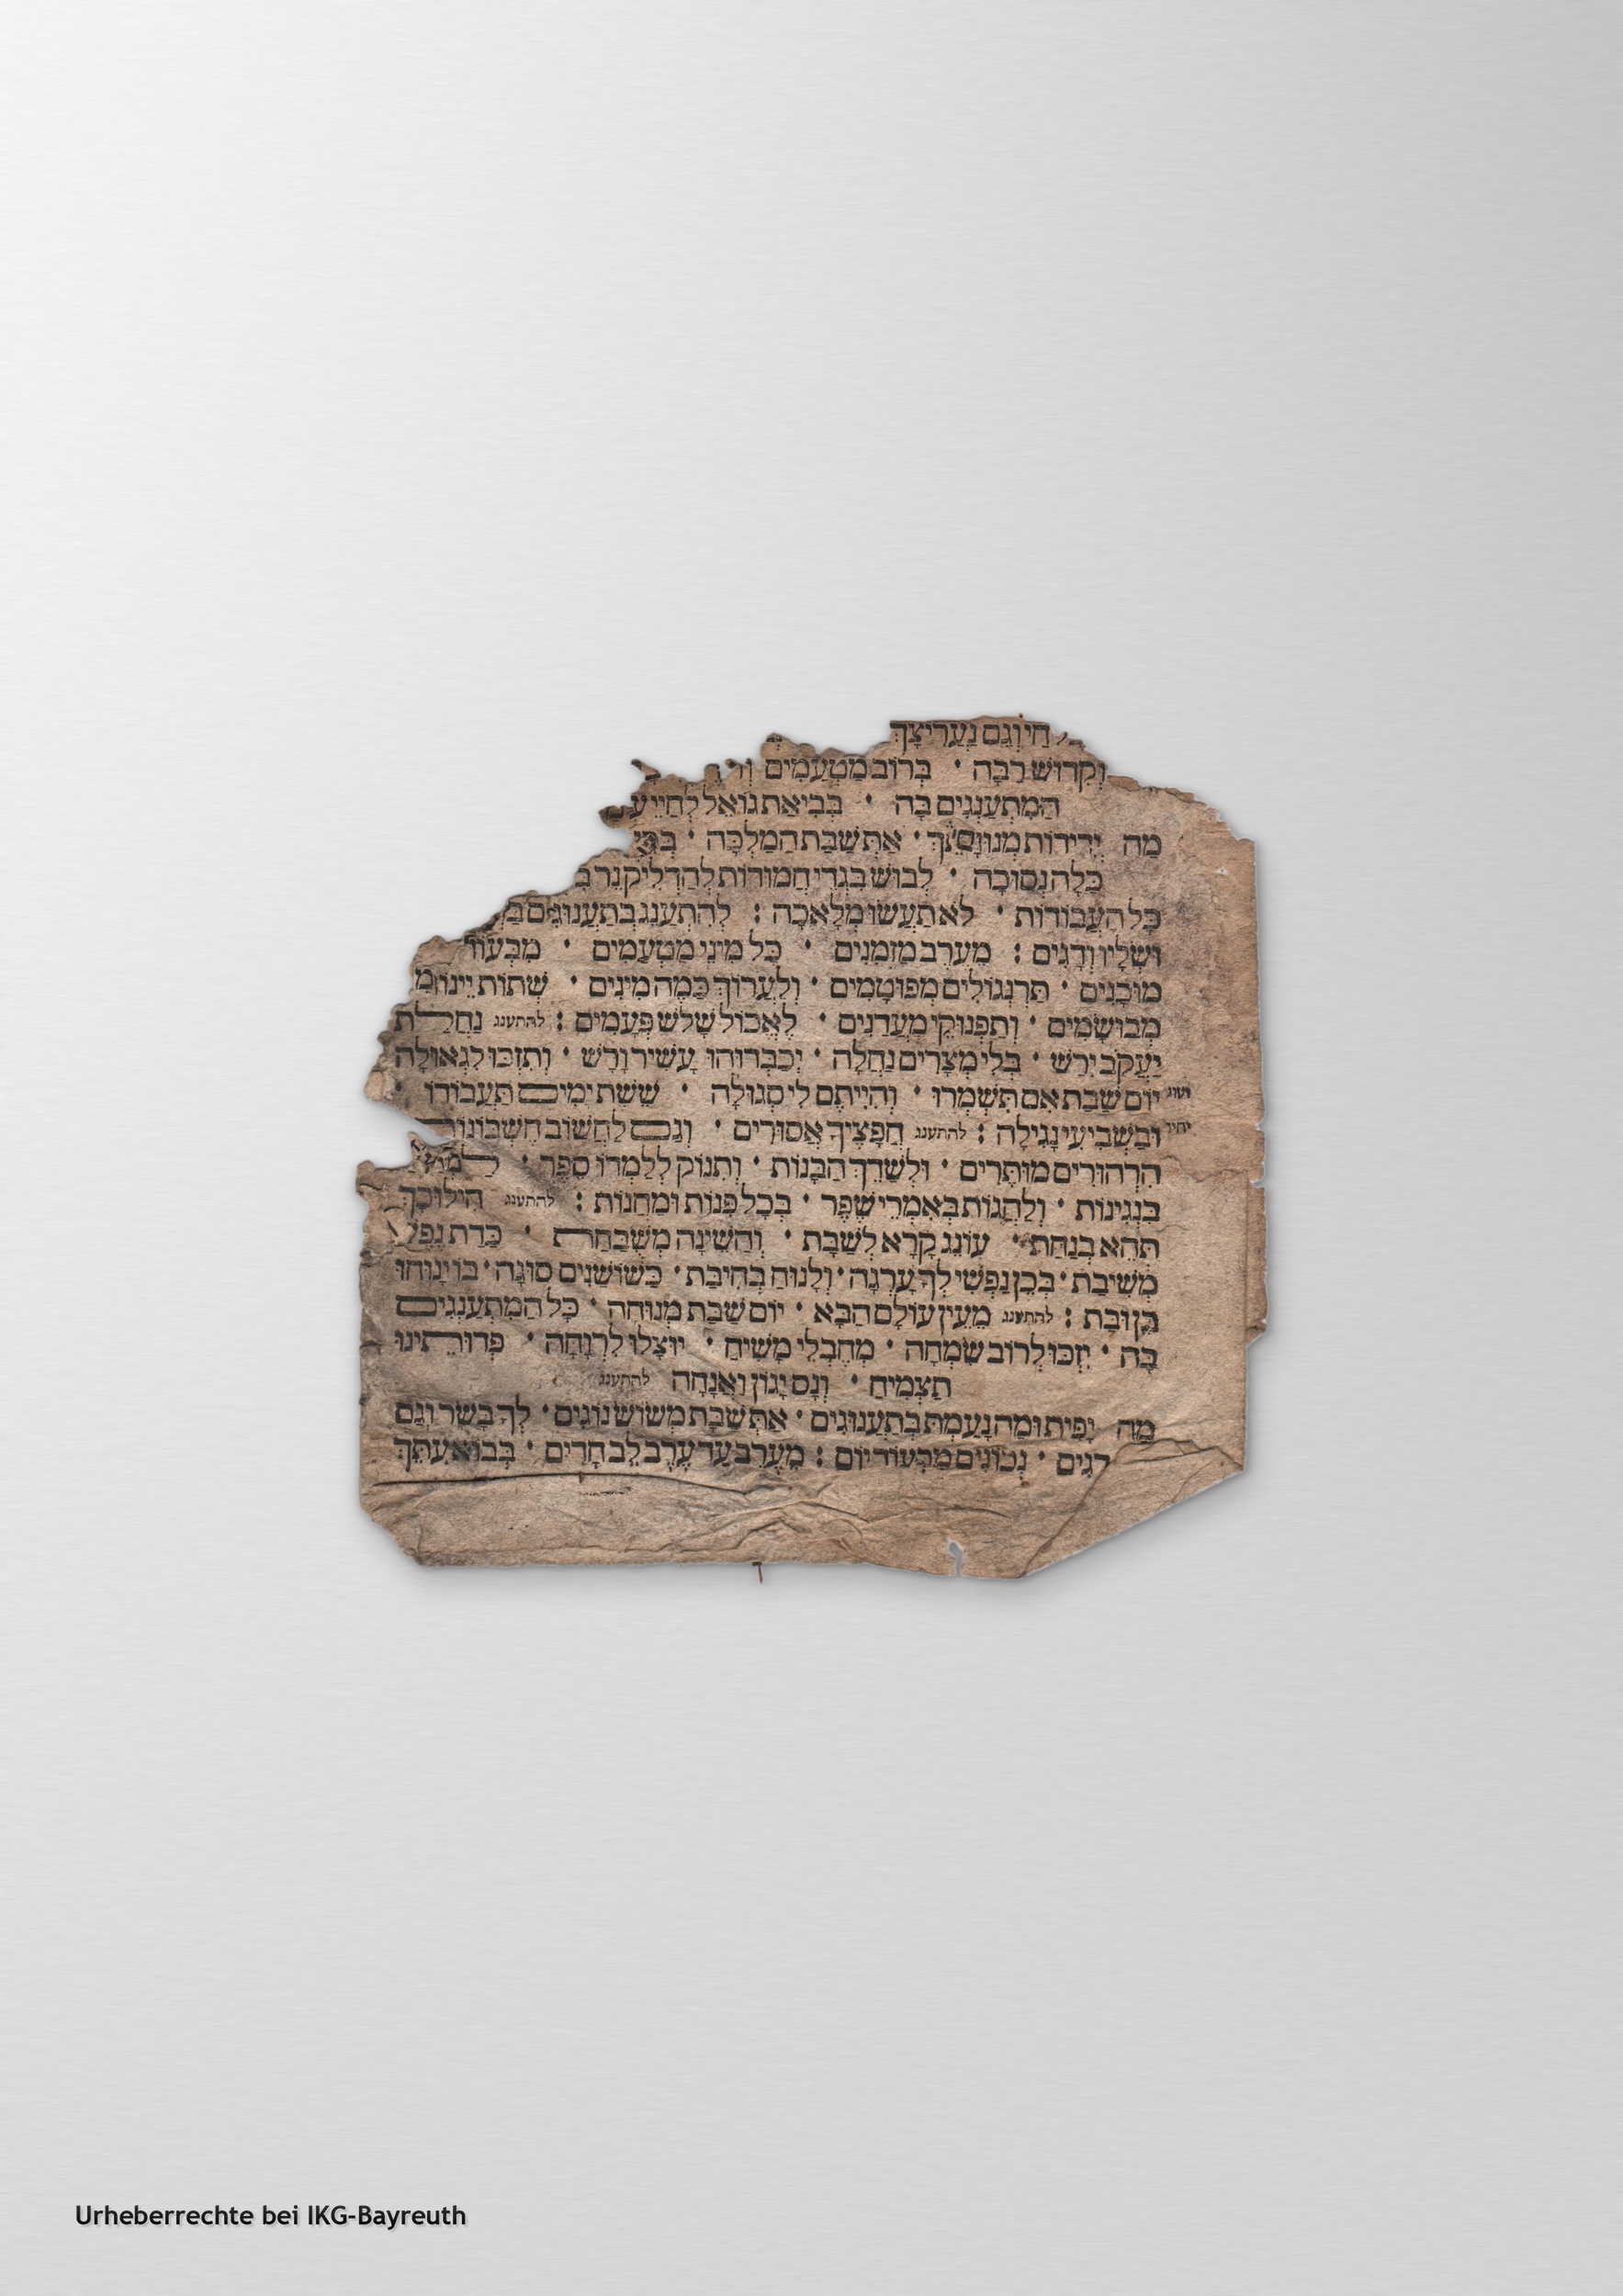 חַי וְגַם נַעֲרִיצָךְ
וְקִדּוּשׁ רַבָּה · בְּרוֹב מַטְעַמִּים
הַמִּתְעַנְּגִים בָּהּ · בְּבִיאַת גּוֹאֵל לְחַיֵּי
מַה יְדִידוּת מְנוּחָתֵךְ · אַתְּ שַׁבָּת הַמַּלְכָּה ·
כַּלָּה נְסוּכָה · לְבוּשׁ בִּגְדֵי חֲמוּדוֹת לְהַדְלִיק נֵר
כָּל הָעֲבוֹדוֹת · לֹא תַעֲשׂוּ מְלָאכָה : לְהִתְעַנֵּג בְּתַעֲנוּגִים
וּשְׂלָיו וְדָגִים : מֵעֶרֶב מַזְמִנִים · כָּל מִינֵי מַטְעַמִּים · מִבְּעוֹד
מוּכָנִים · תַּרְנְגוֹלִים מְפוּטָמִים · וְלַעֲרוֹךְ כַּמָּה מִינִים · שְׁתוֹת יֵינוֹת
מְבוּשָׂמִים · וְתַפְנוּקֵי מַעֲדַנִים · לֶאֱכוֹל שָׁלֹשׁ פְּעָמִים : להתענג נַחֲלַת
יַעֲקֹב יִרַשׁ · בְּלִי מְצָרִים נַחֲלָה · יְכַבְּדוּהוּ עָשִׁיר וָרָשׁ · וְתִזְכּוּ לִגְאוּלָּה
יוֹם שַׁבָּת אִם תִּשְׁמֹרוּ · וִהְיִיתֶם לִי סְגוּלָה · שֵׁשֶׁת יָמִים תַּעֲבוֹדוּ ·
וּבַשְּׁבִיעִי נָגִילָה : להתענג חֲפָצֶיךָ אֲסוּרִים · וְגַם לַחֲשׁוֹב חֶשְׁבּוֹנוֹת
הִרְהוּרִים מוּתָּרִים · וּלְשַׁדֵּךְ הַבָּנוֹת · וְתִנּוֹק לְלַמְּדוֹ סֵפֶר ·
בִּנְגִינוֹת · וְלַהֲגוֹת בְּאִמְרֵי שֶׁפֶר · בְּכָל פִּנּוֹת וּמַחֲנוֹת : להתענג הִילּוּכָךְ
תְּהֵא בְנַחַת · עוֹנֶג קְרָא לַשַּׁבָּת · וְהַשֵּׁינָה מְשֻׁבַּחַת · כְּדָת נֶפֶשׁ
מְשִׁיבַת · בְּכֵן נַפְשִׁי לְךָ עָרְגָה · וְלָנוּחַ בְּחִיבַּת · כַּשּׁוֹשַׁנִּים סוּגָה · בּוֹ יָנוּחוּ
בֵּן וּבַת : להתענג מֵעֵין עוֹלָם הַבָּא · יוֹם שַׁבָּת מְנוּחָה · כָּל הַמִּתְעַנְּגִים
בָּהּ · יִזְכּוּ לְרוֹב שִׂמְחָה · מֵחֶבְלֵי מָשִׁיחַ · יוּצָּלוּ לִרְוָחָה · פְּדוּתֵינוּ
תַצְמִיחַ · וְנָס יָגוֹן וַאֲנָחָה להתענג
מַה יָּפִית וּמַה נָּעַמְתְּ בְּתַעֲנוּגִים · אַתְּ שַׁבָּת מְשׂוֹשׂ נוּגִים · לְךָ בָּשָׂר וְגַם
דָגִים · נְכוֹנִים מִבְּעוֹד יוֹם : מֵעֶרֶב עַד עֶרֶב לֵב חָדִים · בְּבוֹא עִתֵּךְ
Urheberrechte bei IKG-Bayreuth